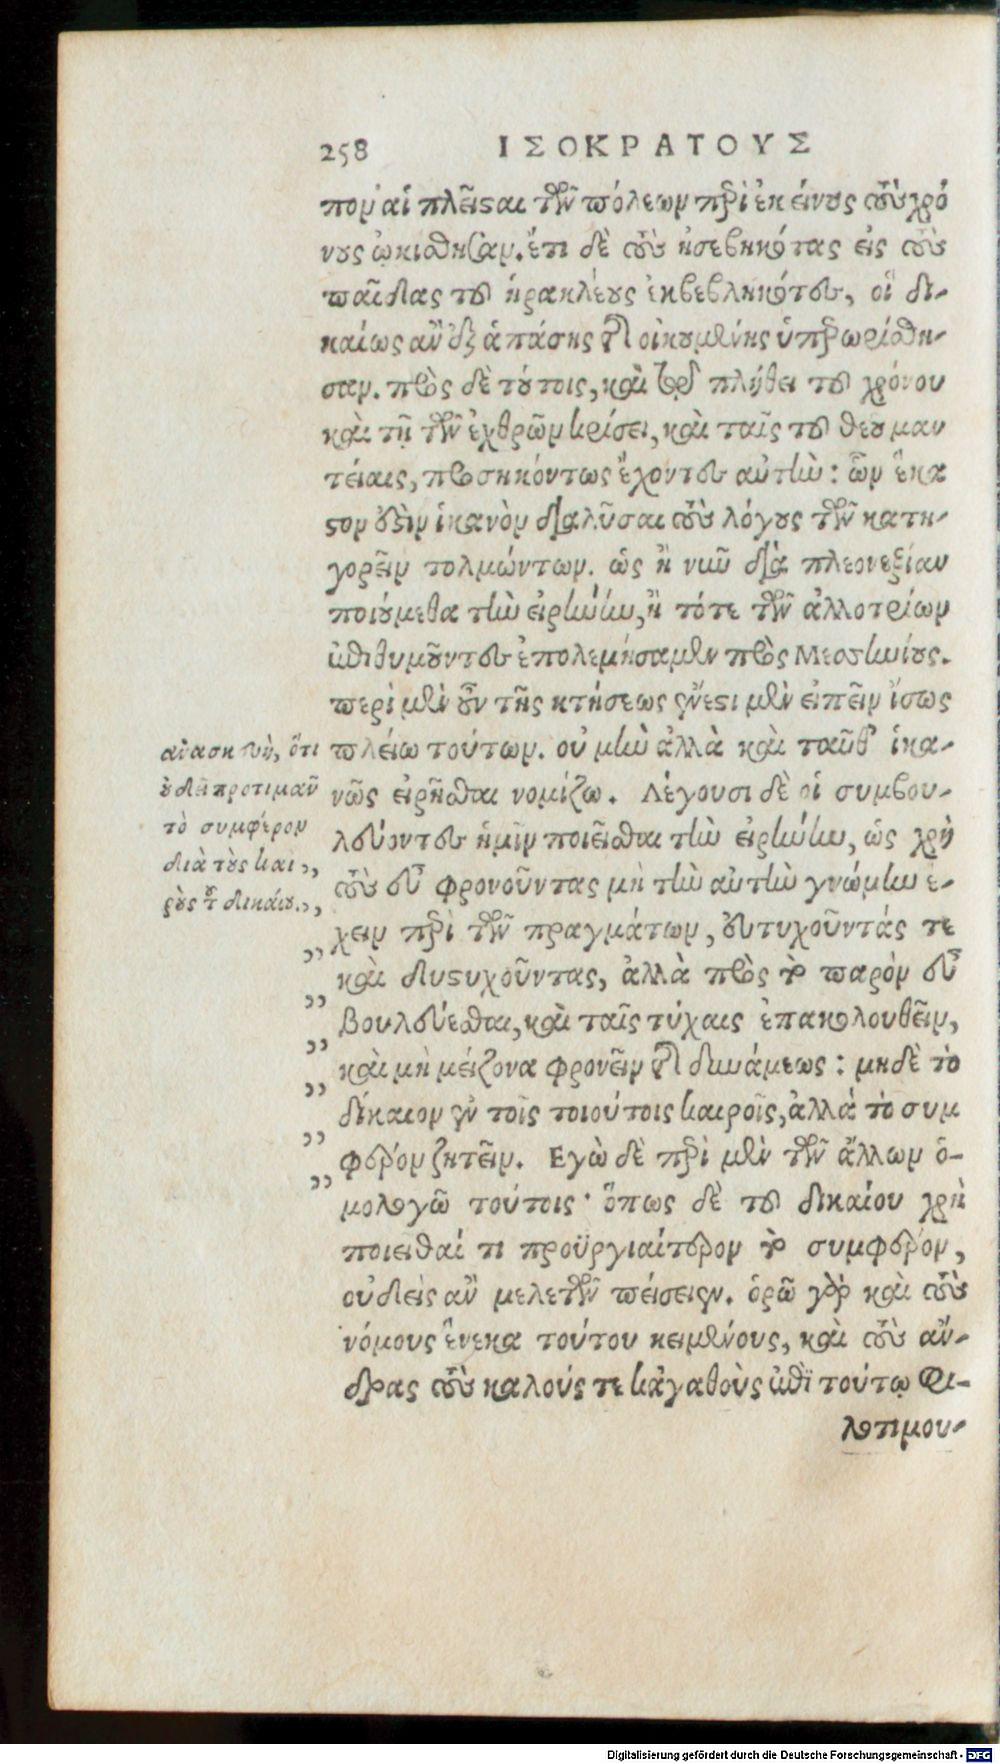 258 ΙΣΟΚΡΑΤΟΥΣ
πον αἱ πλεῖσαι τῶν πόλεων περὶ ἐκείνους τοὺς χρό
νους ᾠκίσθησαν. ἔτι δὲ τοὺς ἠσεβηκότας εἰς τοὺς
παῖδας τοῦ ἡρακλέους ἐκβεβληκότες, οἳ δι-
καίως ἂν ἐξ ἁπάσης τῆς οἰκουμένης ὑπερωρίσθη-
σαν. πρὸς δὲ τούτοις, καὶ τῷ πλήθει τοῦ χρόνου
καὶ τῇ τῶν ἐχθρῶν κρίσει, καὶ ταῖς τοῦ θεοῦ μαν
τείαις, προσηκόντως ἔχοντες αὐτὴν: ὧν ἕκα
στον οὖν ἱκανὸν διαλῦσαι τοὺς λόγους τῶν κατη-
γορεῖν τολμώντων. ὡς ἢ νῦν διὰ πλεονεξίαν
ποιούμεθα τὴν εἰρήνην, ἢ τότε τῶν ἀλλοτρίων
ἐπιθυμοῦντες ἐπολεμήσαμεν πρὸς Μεσσηνίους.
περὶ μὲν οὖν τῆς κτήσεως ἔνεστι μὲν εἰπεῖν ἴσως
πλείω τούτων. οὐ μὴν ἀλλὰ καὶ ταῦθ' ἱκα-
νῶς εἰρῆσθαι νομίζω. Λέγουσι δὲ οἱ συμβου-
λεύοντες ἡμῖν ποιεῖσθαι τὴν εἰρήνην, ὡς χρὴ
τοὺς εὖ φρονοῦντας μὴ τὴν αὐτὴν γνώμην ἔ-
χειν περὶ τῶν πραγμάτων, εὐτυχοῦντάς τε
καὶ δυστυχοῦντας, ἀλλὰ πρὸς τὸ παρὸν εὖ
βουλεύεσθαι, καὶ ταῖς τύχαις ἐπακολουθεῖν,
καὶ μὴ μείζονα φρονεῖν τῆς δυνάμεως: μηδὲ τὸ
δίκαιον ἐν τοῖς τοιούτοις καιροῖς, ἀλλὰ τὸ συμ
φέρον ζητεῖν. Εγὼ δὲ περὶ μὲν τῶν ἄλλων ὁ-
μολογῶ τούτοις· ὅπως δὲ τοῦ δικαίου χρὴ
ποιεῖσθαί τι προϋργιαίτερον τὸ συμφέρον,
οὐδεὶς ἂν με λέγων πείσειεν. ὁρῶ γὰρ καὶ τοὺς
νόμους ἕνεκα τούτου κειμένους, καὶ τοὺς ἄν-
δρας τοὺς καλούς τε κἀγαθοὺς ἐπὶ τούτῳ φι-
λοτιμου-
ἀνασκευὴ, ὅτι
οὐ δεῖ προτιμᾶν
τὸ συμφέρον
διὰ τοὺς και ,,
ροὺς τοῦ δικαίου. ,,
Digitalisierung gefördert durch die Deutsche Forschungsgemeinschaft · DFG